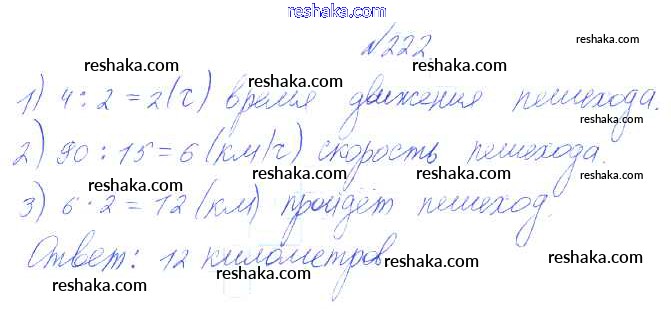 reshaka.com
№222.
reshaka.com reshaka.com reshaka.com
1) 4 : 2 = 2 (ч) время движения пешехода.
reshaka.com reshaka.com reshaka.com
2) 90 : 15 = 6 (км/ч) скорость пешехода.
reshaka.com reshaka.com reshaka.com
3) 6 · 2 = 12 (км) пройдёт пешеход.
reshaka.com reshaka.com reshaka.com
Ответ: 12 километров
reshaka.com